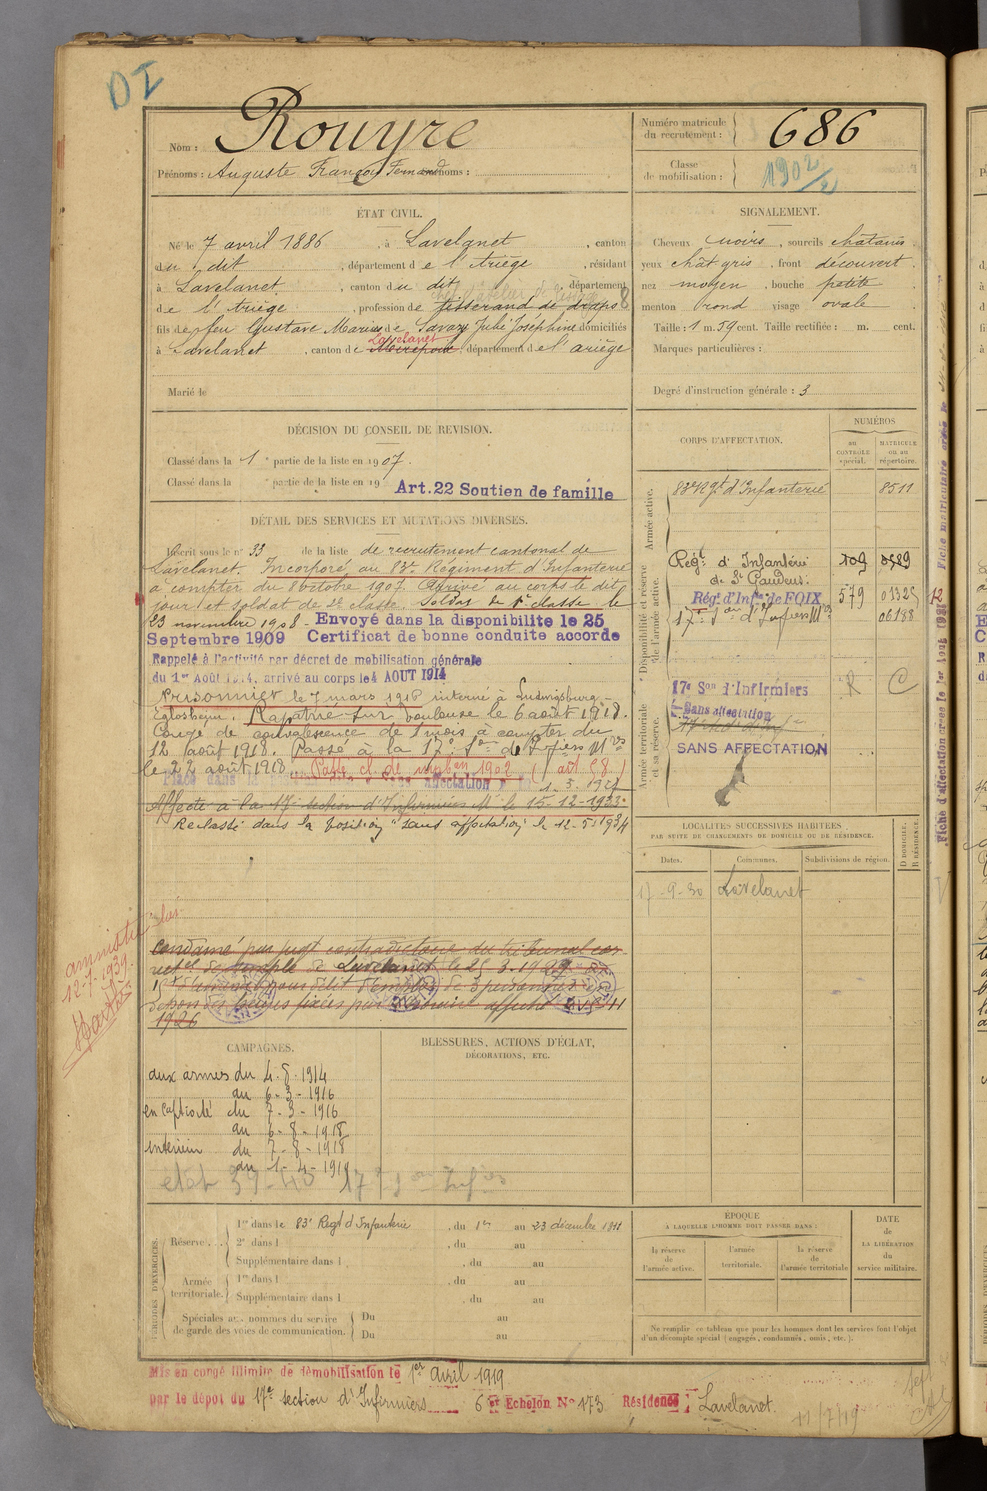 DI
Nom : Rouyre
Prénoms : Auguste François Fernand noms :
Numéro matricule du recrutement : 686
Classe de mobilisation : 1902/2
ÉTAT CIVIL.
Né le 7 avril 1886, à Lavelanet, canton
du dit, département de l'Ariège, résidant
à Lavelanet, canton du dit, département
de l'Ariège, profession de tisserand de draps 8
fils de feu Gustave Marius et de Savary Julie Joséphine domiciliés
Lavelanet
à Lavelanet, canton de Mirepoix, département de l'ariège
Marié le
SIGNALEMENT.
Cheveux noirs, sourcils châtains
yeux chât gris, front découvert
nez moyen, bouche petite
menton rond visage ovale
Taille : 1 m. 59 cent. Taille rectifiée : m. cent.
Marques particulières :
Degré d'instruction générale : 3
DÉCISION DU CONSEIL DE REVISION.
Classé dans la 1e partie de la liste en 1907.
Classé dans la e partie de la liste en 19
Art.22 Soutien de famille
DÉTAIL DES SERVICES ET MUTATIONS DIVERSES.
Inscrit sous le n° 33 de la liste de recrutement cantonal de
Lavelanet. Incorporé au 83e Régiment d'Infanterie
à compter du 8 octobre 1907. Arrivé au corps le dit
jour et soldat de 2e classe. Soldat de 1e classe le
23 novembre 1908. Envoyé dans la disponibilité le 25
Septembre 1909 Certificat de bonne conduite accordé
Rappelé à l'activité par décret de mobilisation générale
du 1er Août 1914, arrivé au corps le 4 AOUT 1914
Prisonnier le 7 mars 1916 interné à Ludwigsburg-
Eglosheim. Rapatrié sur Toulouse le 6 août 1918.
Congé de convalescence de 1 mois à compter du
12 août 1918. Passé à la 17e Son de Infiers Mres
le 22 août 1918. Passé cl. de mob.on 1902 (art 58)
affectation
1.5.1927
Affecté à la 17e section d'Infirmiers Mres le 15-12-1933.
Reclassé dans la position "sans affectation" le 12-5-1934
amnistié
12-7-1939
Condamné par jugt contradictoire du tribunal cor-
rectel de simple de Lavelanet le 25.3.1927
1926
CORPS D'AFFECTATION.
NUMÉROS
au CONTROLE spécial.
MATRICULE ou au répertoire.
Armée active.
83e Rgt d'Infanterie 8511
Disponibilité et réserve de l'armée active.
Régt d'Infanterie 109
de St Gaudens.
Régt d'Infie de FOIX 579 01325
17e Son d'Infiers Mres 06188
Armée territoriale et sa réserve.
17e Son d'Infirmiers R C
Sans affectation
SANS AFFECTATION
LOCALITÉS SUCCESSIVES HABITÉES
PAR SUITE DE CHANGEMENTS DE DOMICILE OU DE RÉSIDENCE.
Dates. Communes. Subdivisions de région. D DOMICILE. R RÉSIDENCE.
17-9-30 Lavelanet
CAMPAGNES.
aux armées du 4.8.1914
au 6-3-1916
en captivité du 7-3-1916
au 6-8-1918
intérieur du 7-8-1918
au 1-4-1919
état 39-40 17e Son Infres
BLESSURES, ACTIONS D'ÉCLAT,
DÉCORATIONS, ETC.
PÉRIODES D'EXERCICES.
Réserve...
1re dans le 83e Regt d'Infanterie, du 1er au 23 décembre 1911
2e dans l, du au
Supplémentaire dans l, du au
Armée territoriale.
1re dans l, du au
Supplémentaire dans l, du au
Spéciales aux hommes du service de garde des voies de communication.
Du au
Du au
ÉPOQUE
A LAQUELLE L'HOMME DOIT PASSER DANS :
la réserve de l'armée active.
l'armée territoriale.
la réserve de l'armée territoriale
DATE de LA LIBÉRATION du service militaire.
Ne remplir ce tableau que pour les hommes dont les services font l'objet
d'un décompte spécial (engagés, condamnés, omis, etc.).
Mis en congé illimité de démobilisation le 1er avril 1919
par le dépôt du 17e section d'Infirmiers 6e Echelon N° 173 Résidence : Lavelanet.
11/7/19